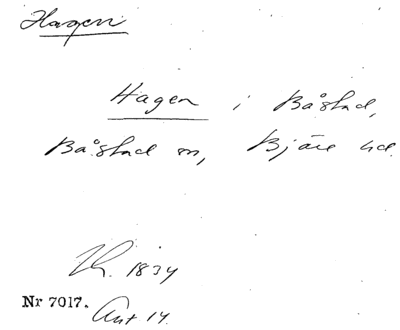 Hagen
Hagen i Båstad,
Båstad sn, Bjäre hd.
Th. 1834
Nr 7017. Ant 14.